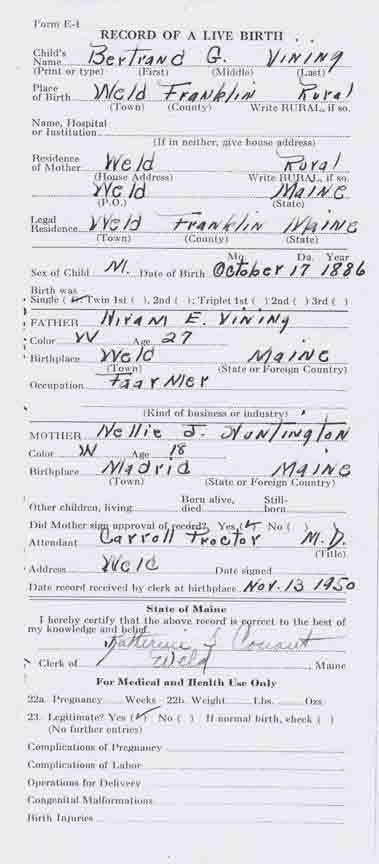 Form E-1
RECORD OF A LIVE BIRTH
Child's Name Bertrand G. Vining
(Print or type) (First) (Middle) (Last)
Place of Birth Weld Franklin Rural
(Town) (County) Write RURAL, if so.
Name, Hospital or Institution
(If in neither, give house address)
Residence of Mother Weld Rural
(House Address) Write RURAL, if so.
Weld Maine
(P.O.) (State)
Legal Residence Weld Franklin Maine
(Town) (County) (State)
Mo. Da. Year
Sex of Child M. Date of Birth October 17 1886
Birth was
Single (✓) Twin 1st ( ), 2nd ( ); Triplet 1st ( ) 2nd ( ) 3rd ( )
FATHER Hiram E. Vining
Color W Age 27
Birthplace Weld Maine
(Town) (State or Foreign Country)
Occupation Faarmer
(Kind of business or industry)
MOTHER Nellie J. Huntington
Color W Age 18
Birthplace Madrid Maine
(Town) (State or Foreign Country)
Other children, living Born alive, died Still-born
Did Mother sign approval of record? Yes (✓) No ( )
Attendant Carroll Proctor M.D.
(Title)
Address Weld Date signed
Date record received by clerk at birthplace Nov. 13 1950
State of Maine
I hereby certify that the above record is correct to the best of
my knowledge and belief.
Katherine L Conant
Clerk of Weld, Maine
For Medical and Health Use Only
22a. Pregnancy Weeks 22b. Weight Lbs. Ozs
23. Legitimate? Yes (✓) No ( ) If normal birth, check ( )
(No further entries)
Complications of Pregnancy
Complications of Labor
Operations for Delivery
Congenital Malformations
Birth Injuries